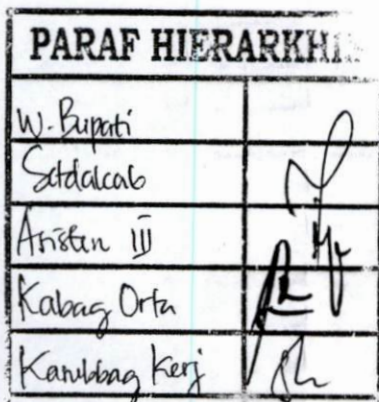 PARAF HIERARKHI
W. Bupati
Setdakab
Asisten III
Kabag Orta
Kasubbag Kerj